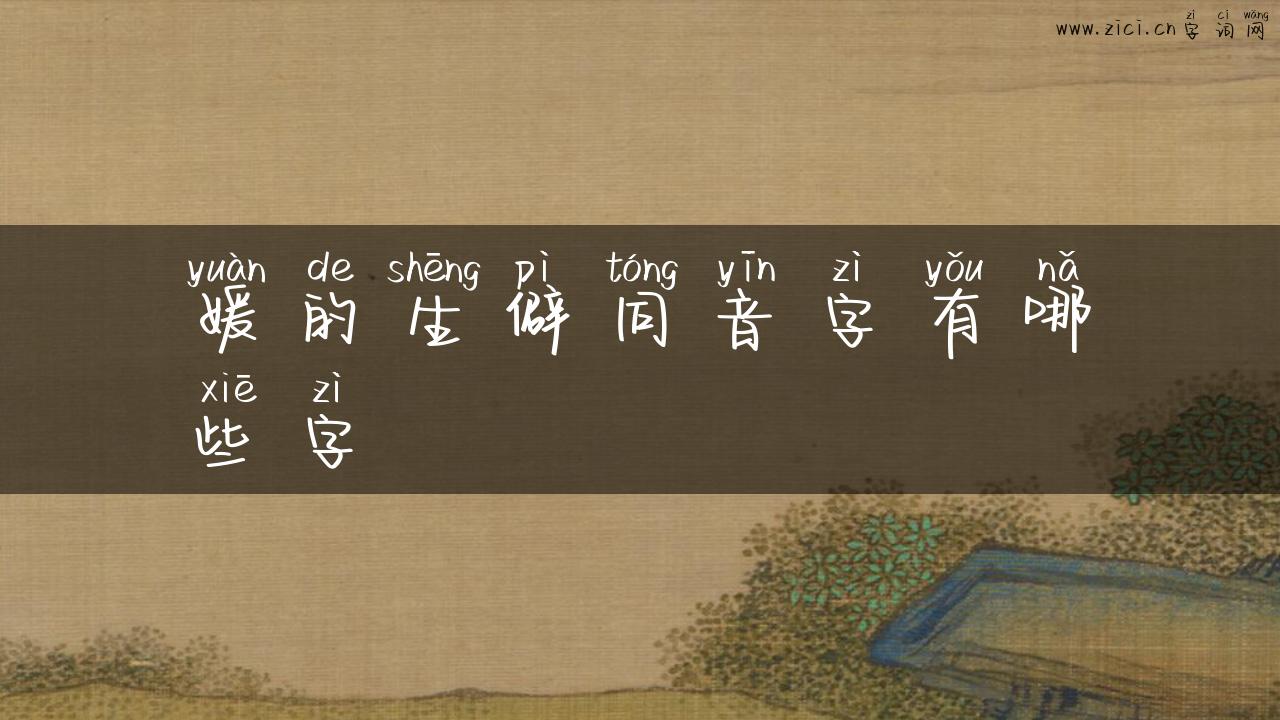 zì cí wǎng
www.zici.cn 字 词 网
yuàn de shēng pì tóng yīn zì yǒu nǎ
媛 的 生 僻 同 音 字 有 哪
xiē zì
些 字